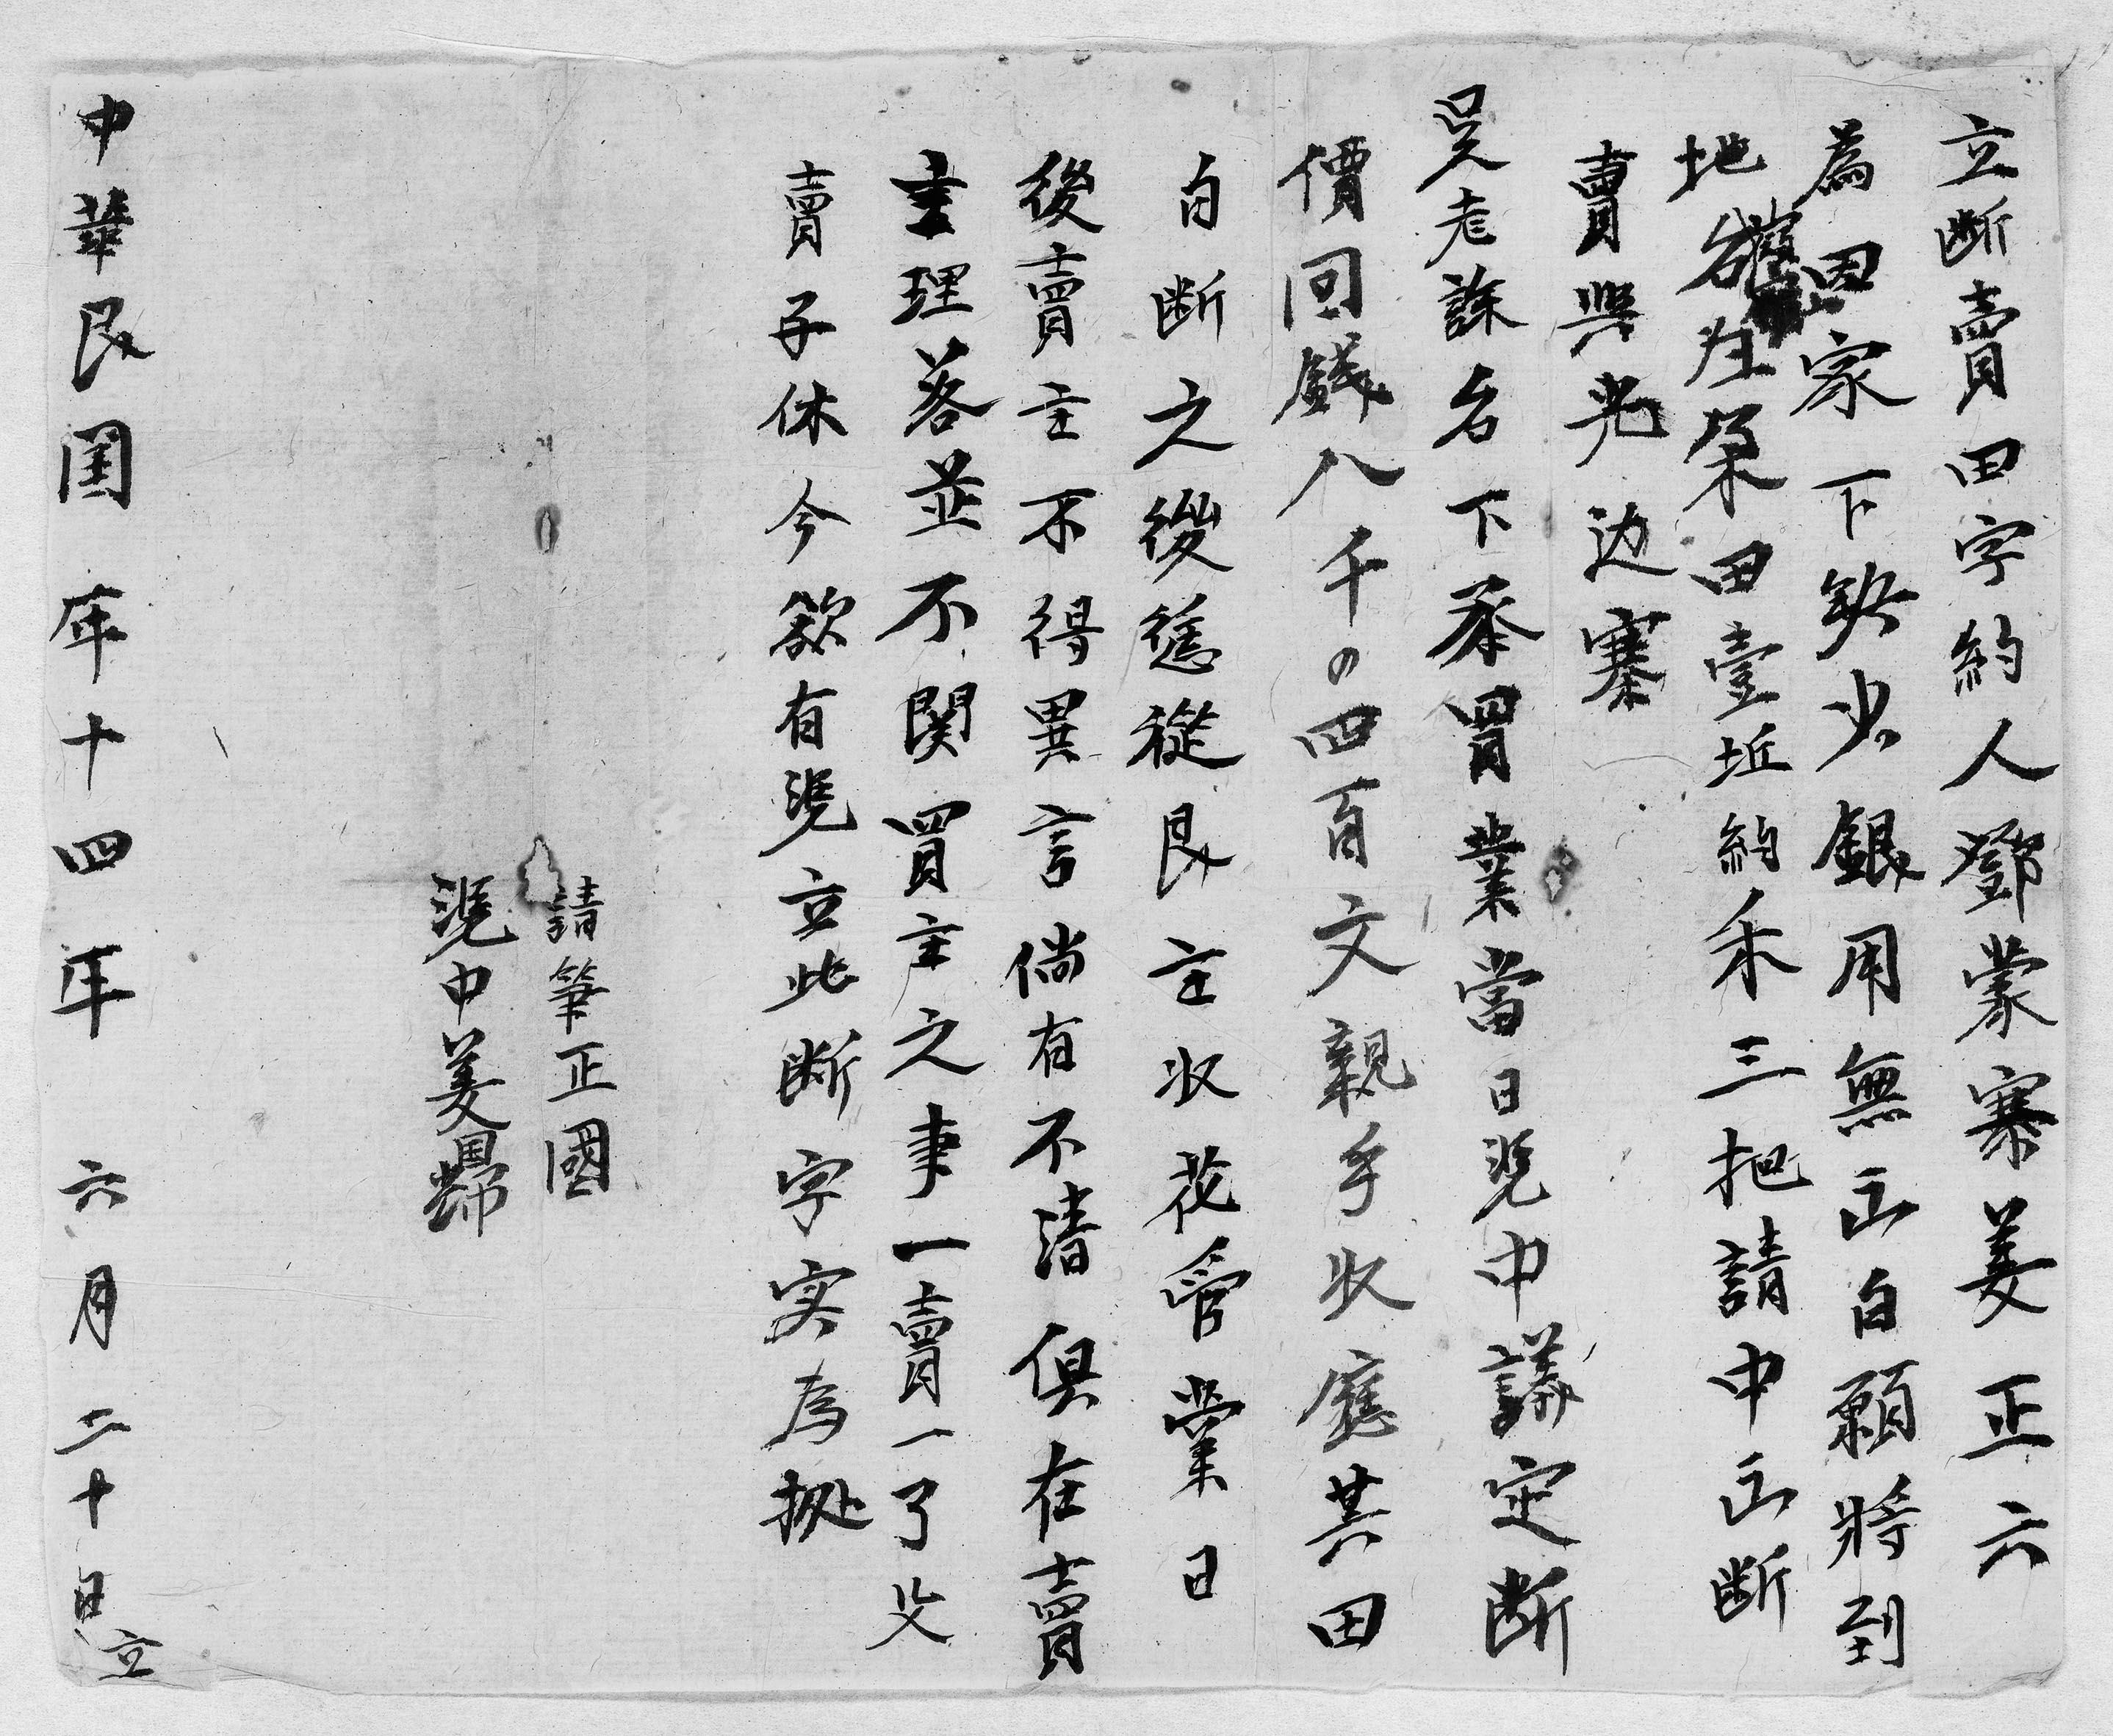 立断賣田字約人鄧蒙寨姜正六
為因家下缺少銀用無出自願將到
地名在朶田壹坵約禾三把請中出断
賣與光边寨
吴老諫名下承買業當日凭中議定断
價回錢八千四百文親手收應其田
自断之後慿從艮主收花管業日
後賣主不得異言倘有不清俱在賣
主理落並不関買主之事一賣一了父
賣子休今欲有凴立此断字实為拠
請筆正國
凴中姜國歸
中華民國年十四年六月二十日立